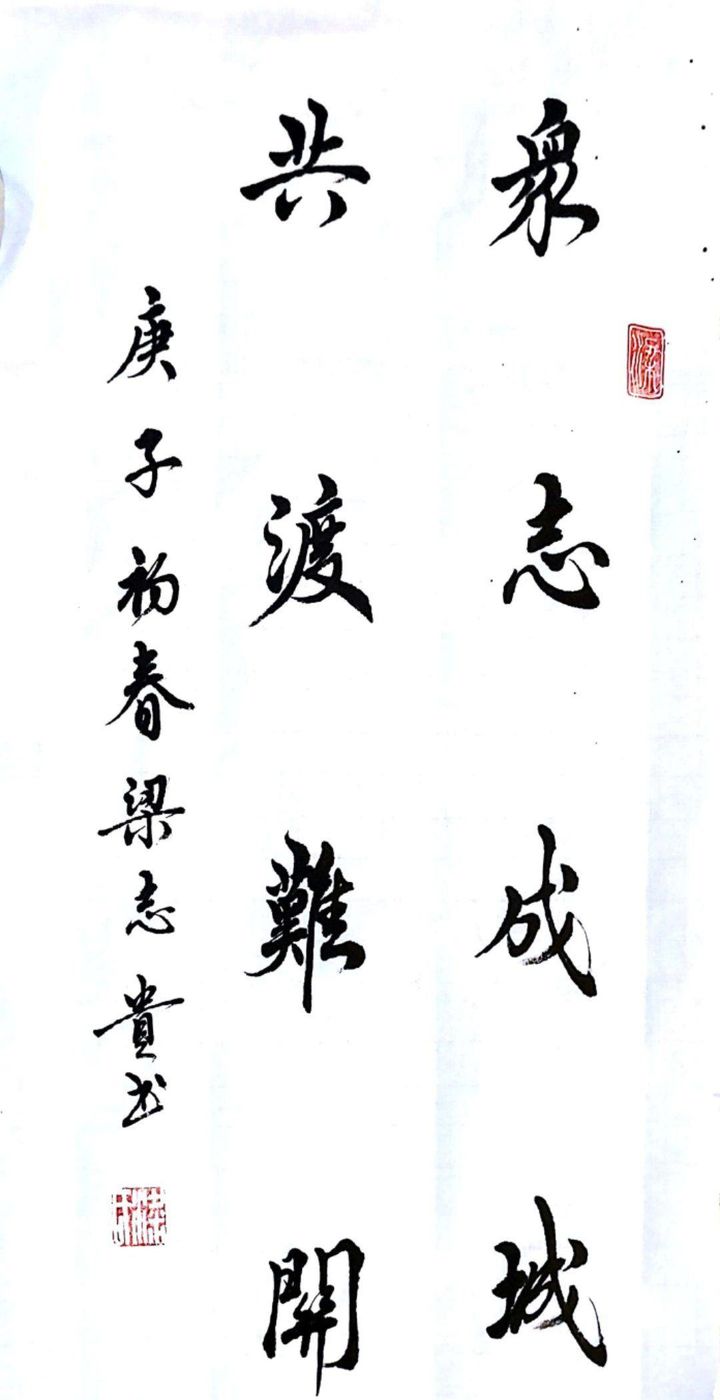 衆志成城
共渡難關
庚子初春梁志貴书